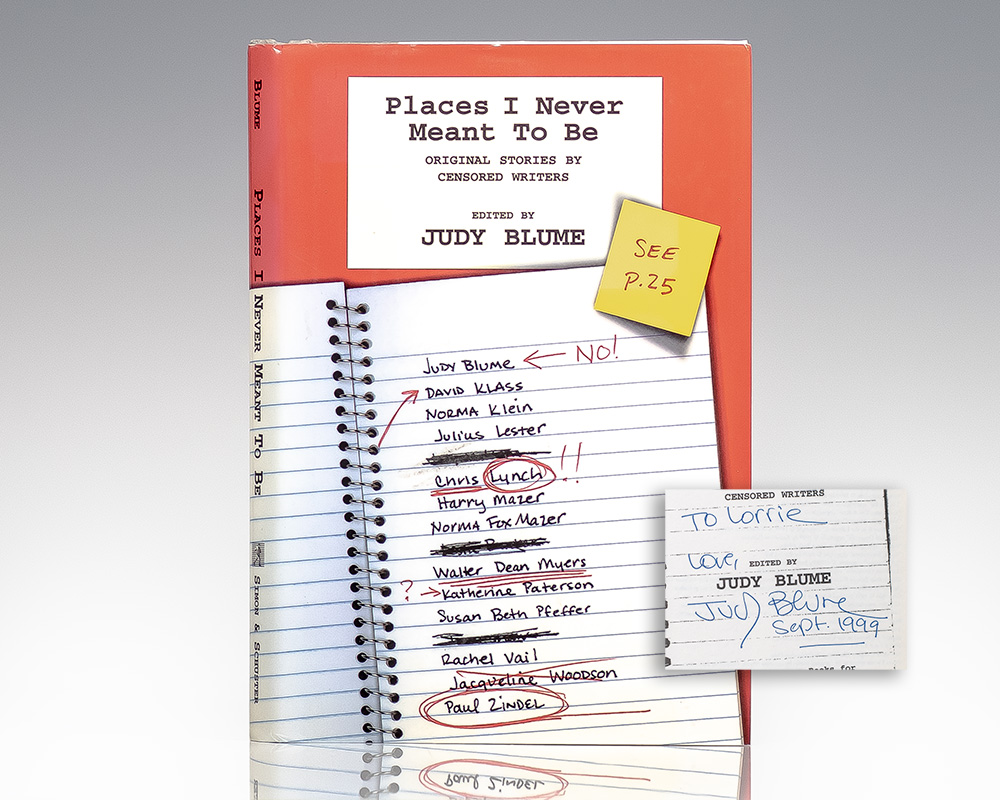 BLUME PLACES I NEVER MEANT TO BE SIMON & SCHUSTER
Places I Never
Meant To Be
ORIGINAL STORIES BY
CENSORED WRITERS
EDITED BY
JUDY BLUME
SEE
P.25
Judy Blume ← NO!
DAVID KLASS
NORMA Klein
Julius Lester
Chris Lynch !!
Harry Mazer
NORMA FOX MAZER
Walter Dean Myers
? → Katherine Paterson
Susan Beth Pfeffer
Rachel Vail
Jacqueline Woodson
Paul ZINDEL
CENSORED WRITERS
To Lorrie
Love, EDITED BY
JUDY BLUME
Judy Blume
Sept. 1999